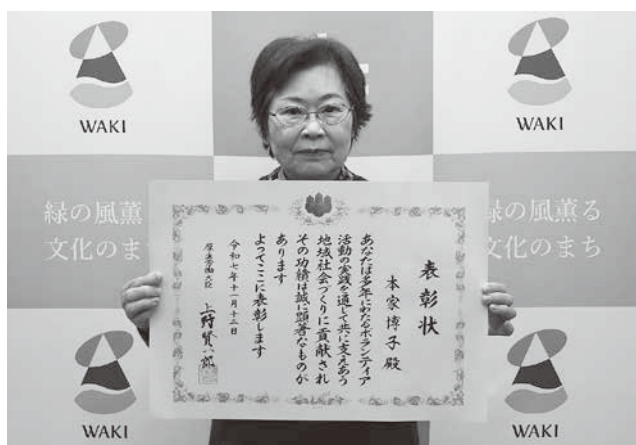 WAKI
WAKI
緑の風薫
文化のまち
緑の風薫る
文化のまち
表彰状
本家博子殿
あなたは多年にわたるボランティア
活動の実践を通じて共に支えあう
地域社会づくりに貢献され
その功績は誠に顕著なものが
あります
よってここに表彰します
令和七年十一月十二日
厚生労働大臣
上野賢一郎
WAKI
WAKI